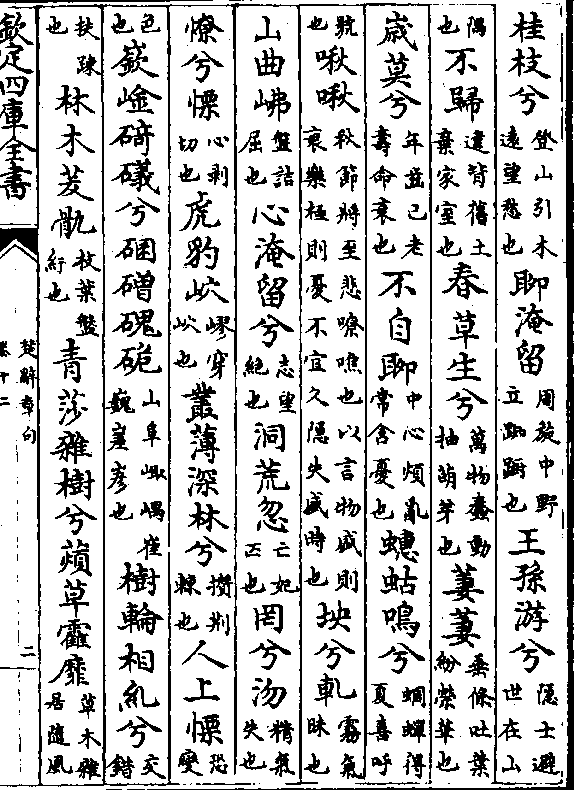 桂枝兮登山引木遠望愁也聊淹留周旋中野立踟蹰也王孫游兮隱士避世在山
隅也不歸違背舊土棄家室也春草生兮萬物蠢動抽萌芽也萋萋垂條吐葉紛榮華也
歲莫兮年齒已老壽命衰也不自聊中心煩亂常含憂也蟪蛄鳴兮蜩蟬得夏喜呼
號也啾啾秋節將至悲嘹噍也以言物盛則衰樂極則憂不宜久隱失盛時也坱兮軋霧氣昧也
山曲岪盤詰屈也心淹留兮志望絕也洞荒忽亡妃匹也罔兮沕精氣失也
憭兮慄心剥切也虎豹岤嵺穿岤也叢薄深林兮攢荆棘也人上慄恐變
色也嶔崯碕礒兮碅磳磈硊山阜峨嵎崔巍嵳彥也樹輪相糺兮交錯
扶疎也林木茇骫枝葉盤紆也青莎雜樹兮薠草靃靡草木雜居隨風
欽定四庫全書
楚辭章句
卷十二
二